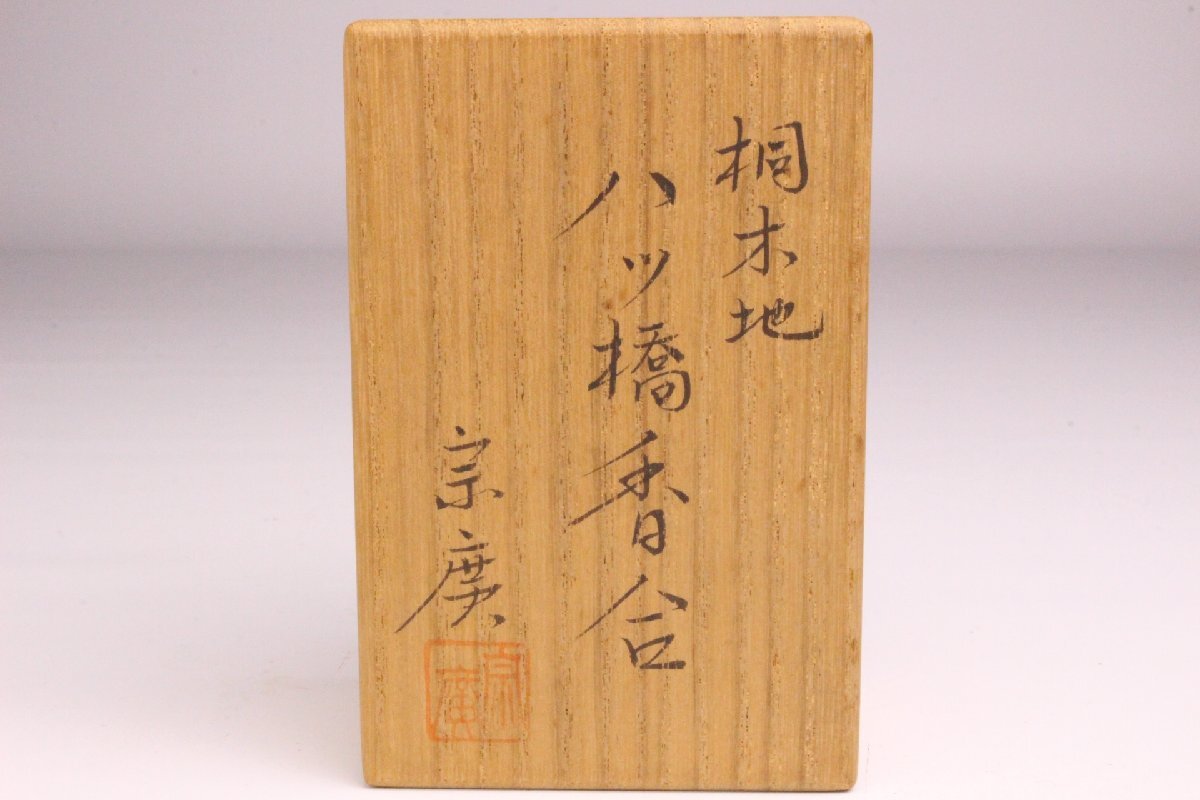 桐木地
八ツ橋香合
宗廣
宗廣